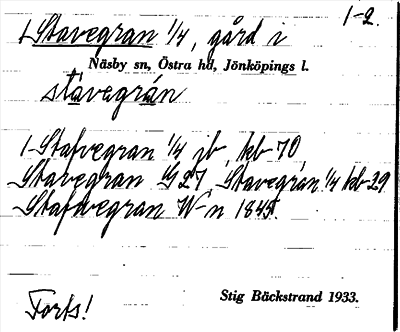 1-2.
1 Stavegran 1/4, gård i
Näsby sn, Östra hd, Jönköpings l.
stávegrán
1-Stafvegran 1/4 jb, kb-70
Stavegran G 27, Stavegrán 1/4 kb-29
Stafvegran W-n 1845.
Forts!
Stig Bäckstrand 1933.